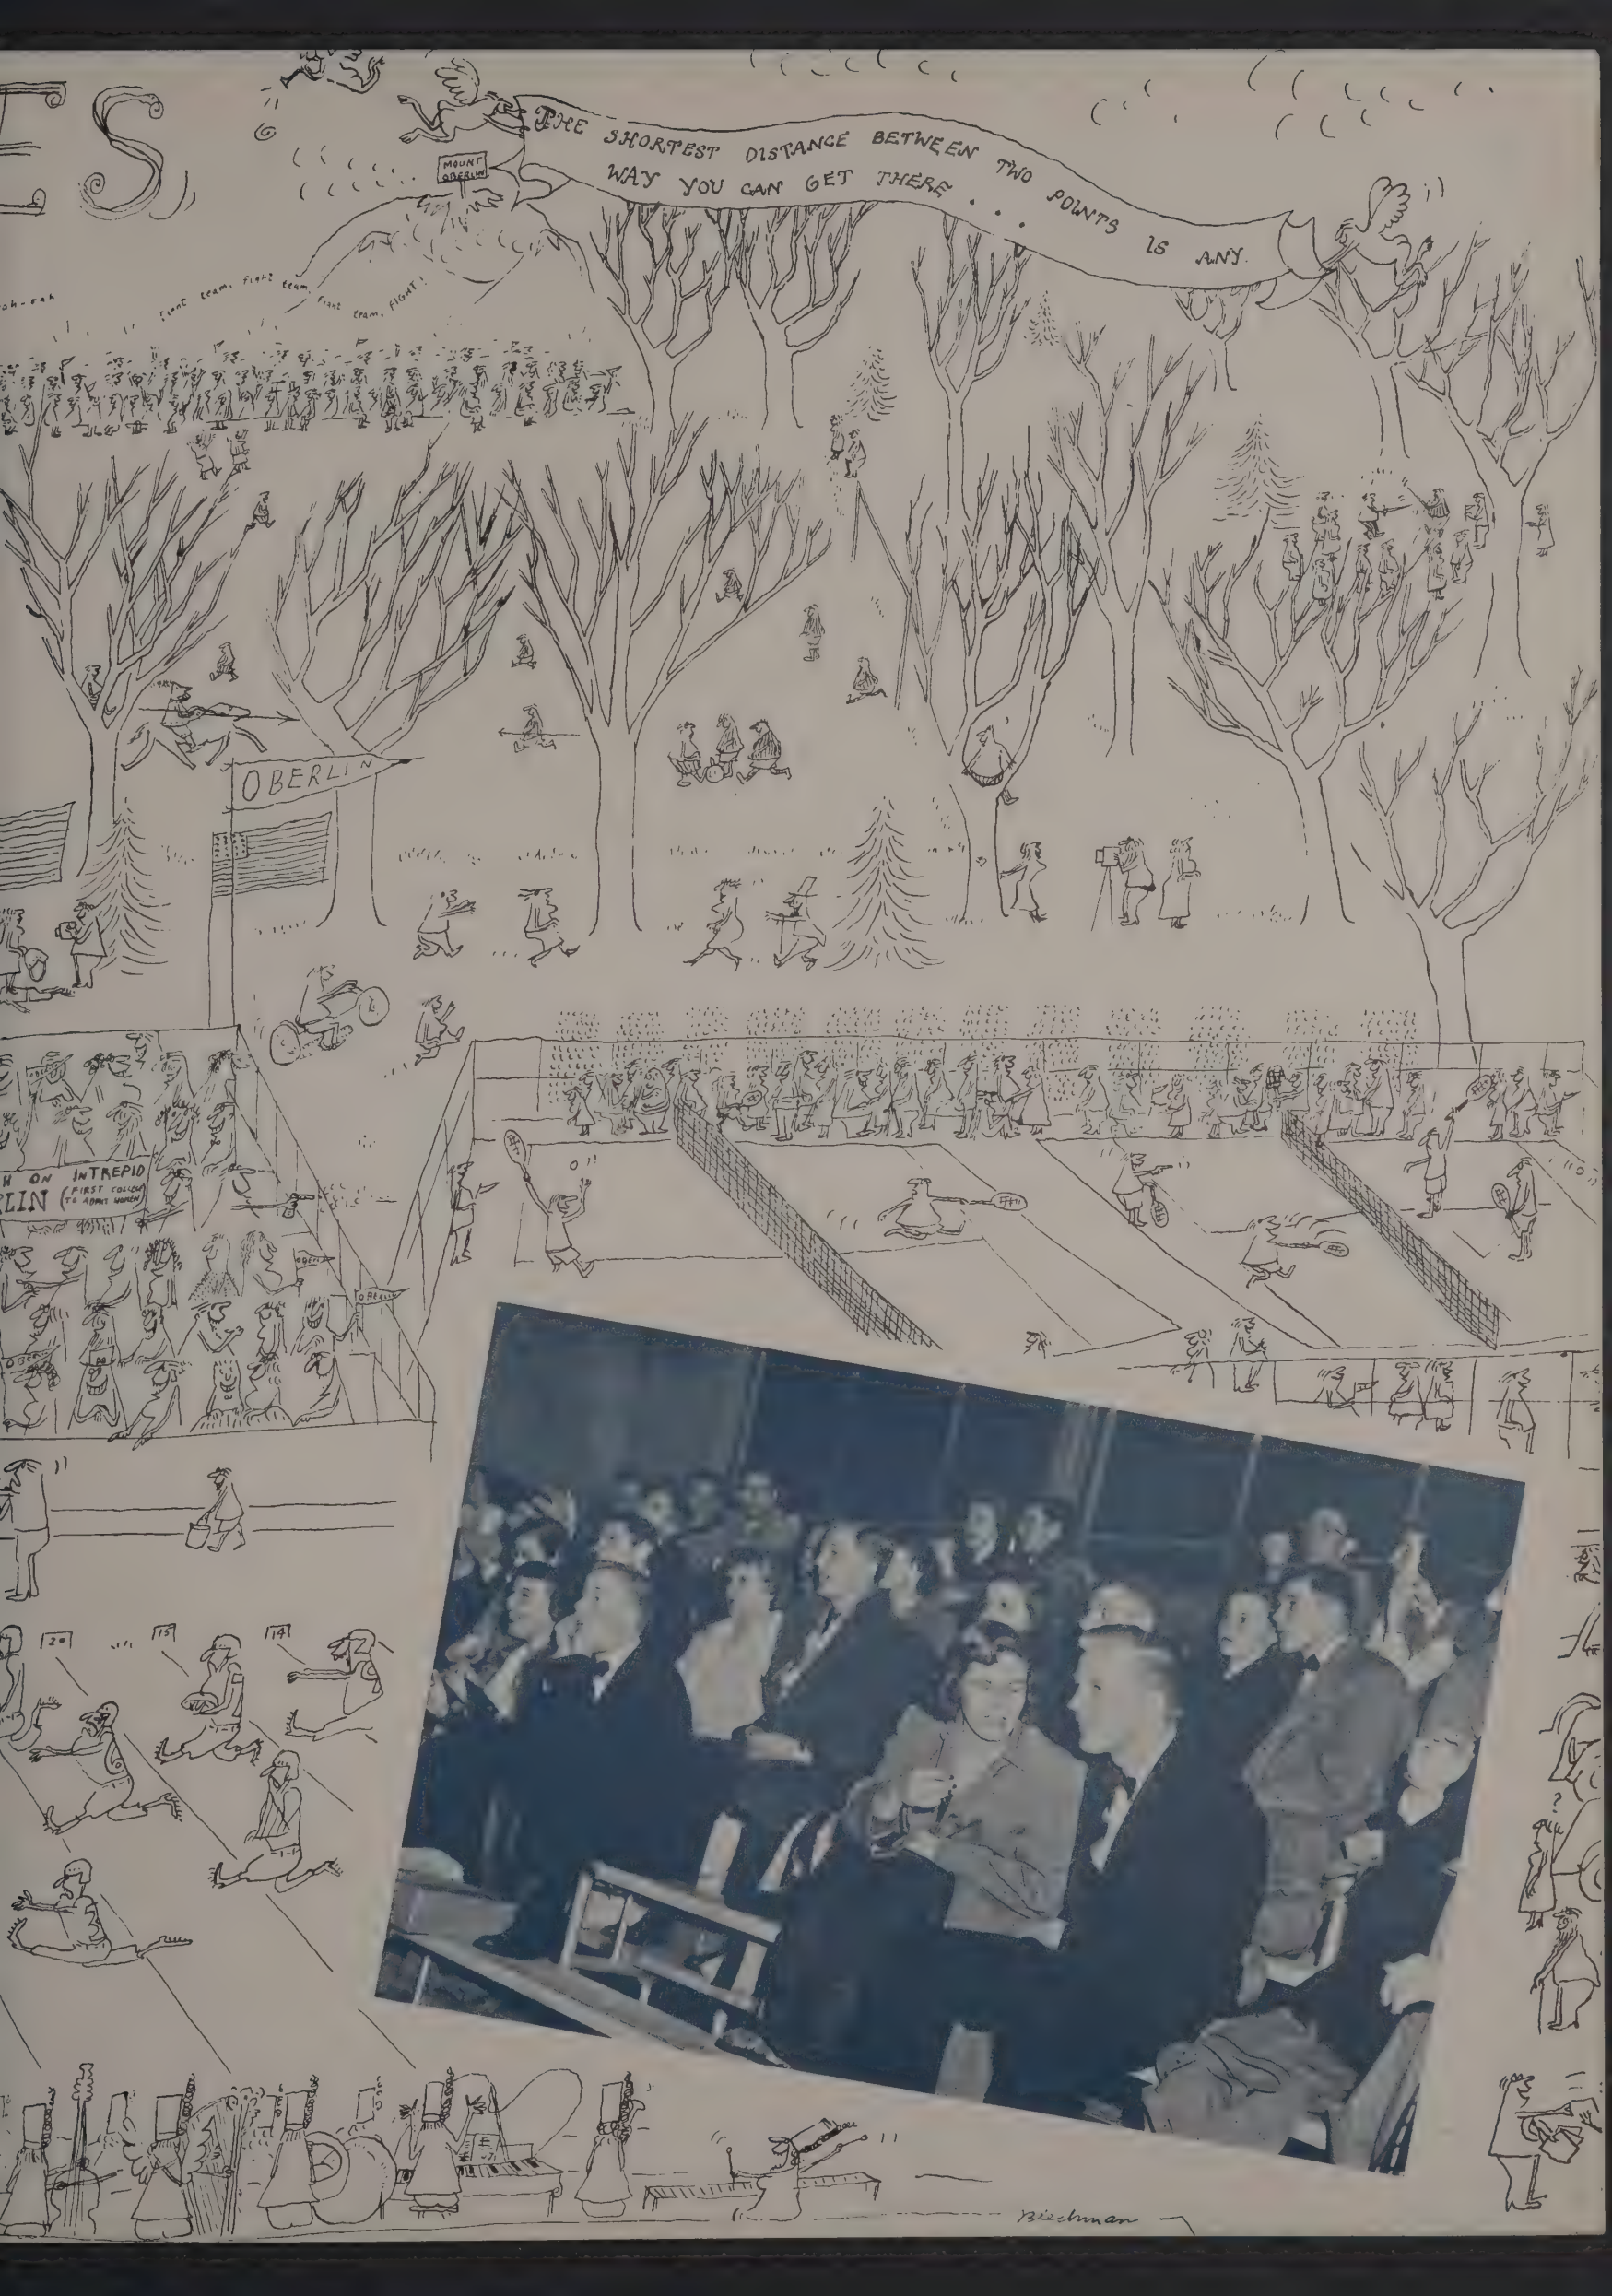 ES
THE SHORTEST DISTANCE BETWEEN TWO POINTS IS ANY
WAY YOU CAN GET THERE . . .
MOUNT
OBERLIN
oh-rah
fight team, fight team,
fight team, FIGHT!
OBERLIN
H ON INTREPID
RLIN (FIRST COLLEGE
TO ADMIT WOMEN)
20
15
14
?